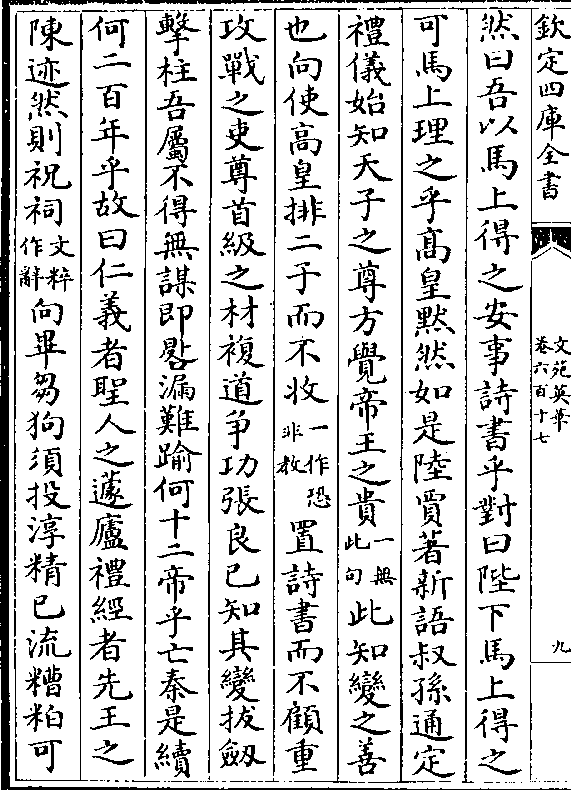 欽定四庫全書
文苑英華
卷六百十七
九
然曰吾以馬上得之安事詩書乎對曰陛下馬上得之
可馬上理之乎髙皇黙然如是陸賈著新語叔孫通定
禮儀始知天子之尊方覺帝王之貴一無此句此知變之善
也向使高皇排二子而不收一作恐非教置詩書而不顧重
攻戰之吏尊首級之材複道爭功張良已知其變拔劒
擊柱吾屬不得無謀即晷漏難踰何十二帝乎亡秦是續
何二百年乎故曰仁義者聖人之蘧廬禮經者先王之
陳迹然則祝祠文粹作辭向畢芻狗須投淳精已流糟粕可